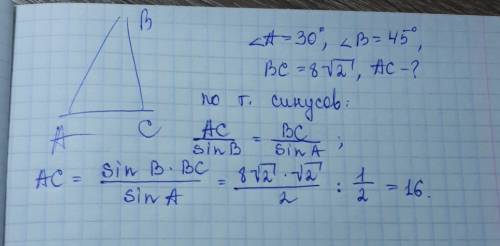 B
A
C
∠A = 30°, ∠B = 45°,
BC = 8√2, AC - ?
по т. синусов:
AC/sin B = BC/sin A ;
AC = sin B · BC / sin A = 8√2 · √2 / 2 : 1/2 = 16.